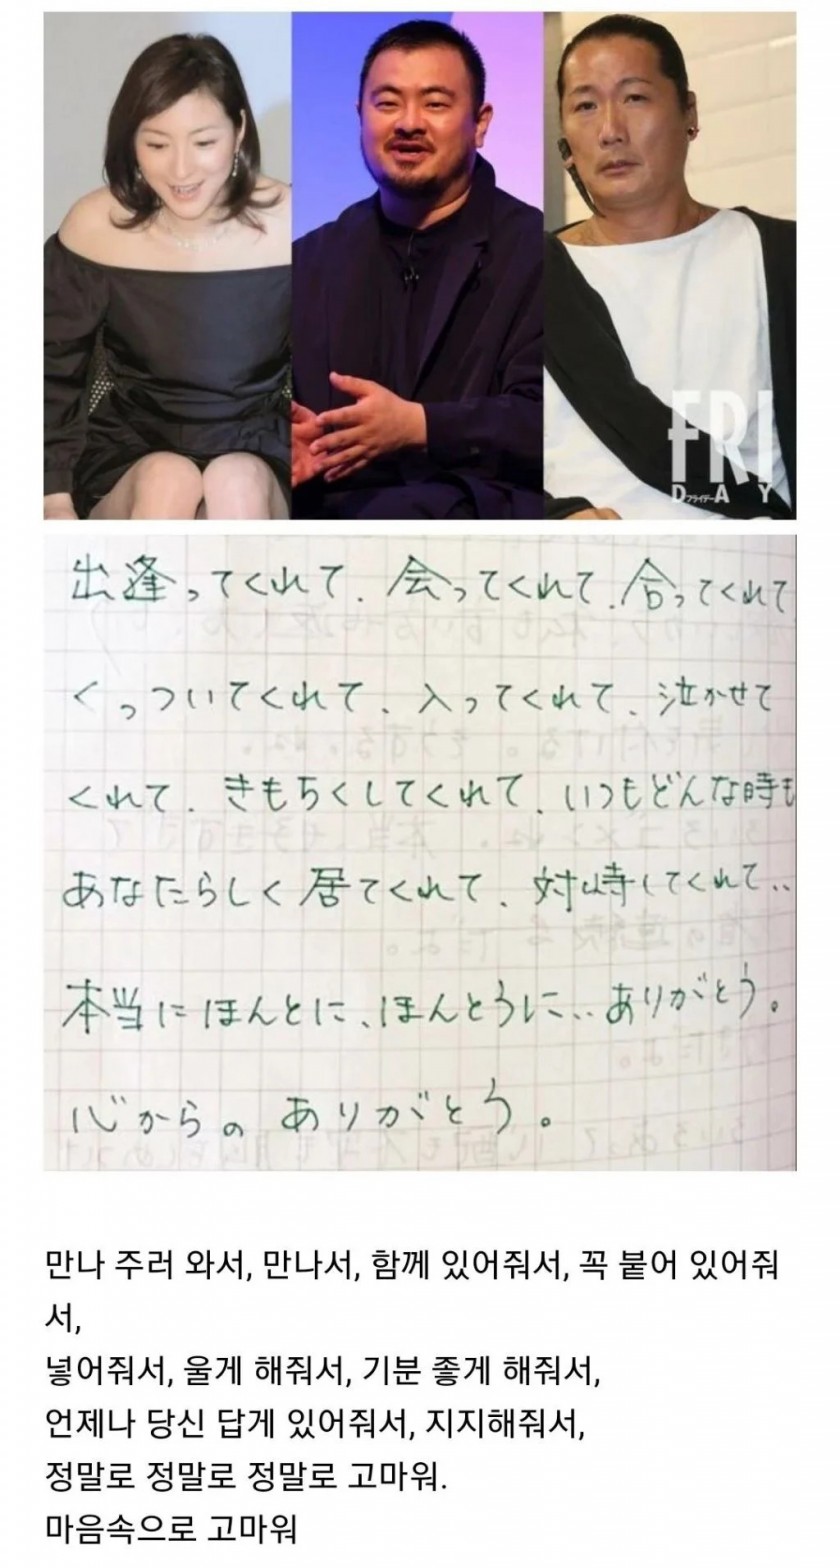 FRI
DAY
フライデー
出逢ってくれて、会ってくれて、合ってくれて
くっついてくれて、入ってくれて、泣かせて
くれて、きもちくしてくれて、いつもどんな時も
あなたらしく居てくれて、対峙してくれて..
本当にほんとに、ほんとうに... ありがとう。
心からの ありがとう。
만나 주러 와서, 만나서, 함께 있어줘서, 꼭 붙어 있어줘
서,
넣어줘서, 울게 해줘서, 기분 좋게 해줘서,
언제나 당신 답게 있어줘서, 지지해줘서,
정말로 정말로 정말로 고마워.
마음속으로 고마워